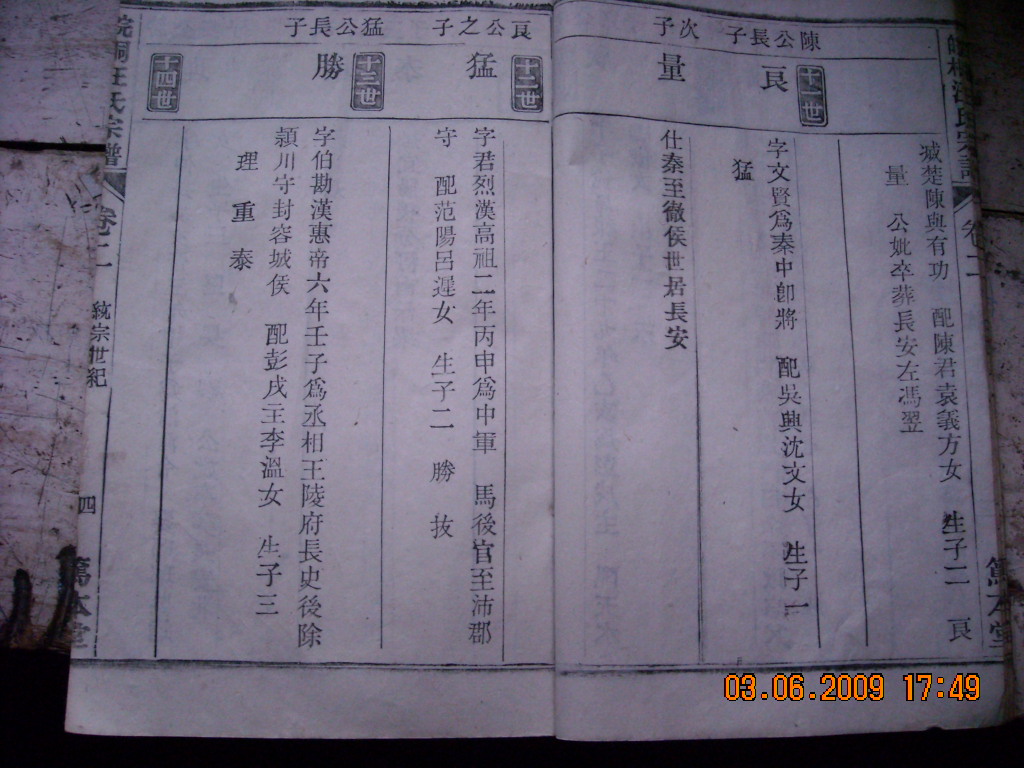 臧楚陳與有功 配陳君袁義方女 生子二 良
量 公妣卒葬長安左馮翌
十二世
陳公長子
良
字文賢為秦中郎將 配吳興沈文女 生子一
猛
次子
量
仕秦至徹侯世居長安
十二世
良公之子
猛
字君烈漢高祖二年丙申為中軍 馬後官至沛郡
守 配范陽呂遲女 生子二 勝 技
十三世
猛公長子
勝
字伯勘漢惠帝六年壬子為丞相王陵府長史後除
潁川守封容城侯 配彭戌王李溫女 生子三
理 重 泰
十四世
皖桐汪氏宗譜 卷二 統宗世紀 四 篤本堂
03.06.2009 17:49